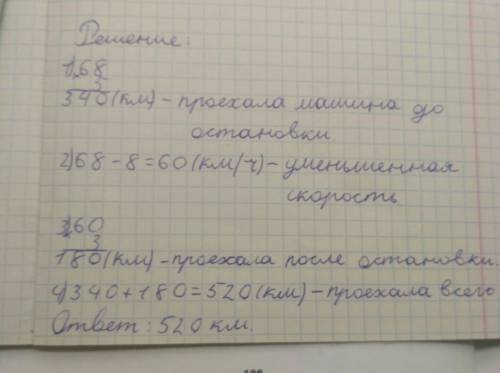 Решение:
1) 68
5
340 (км) – проехала машина до
остановки.
2) 68 – 8 = 60 (км/ч) – уменьшенная
скорость
3) 60
3
180 (км) – проехала после остановки.
4) 340 + 180 = 520 (км) – проехала всего
Ответ: 520 км.